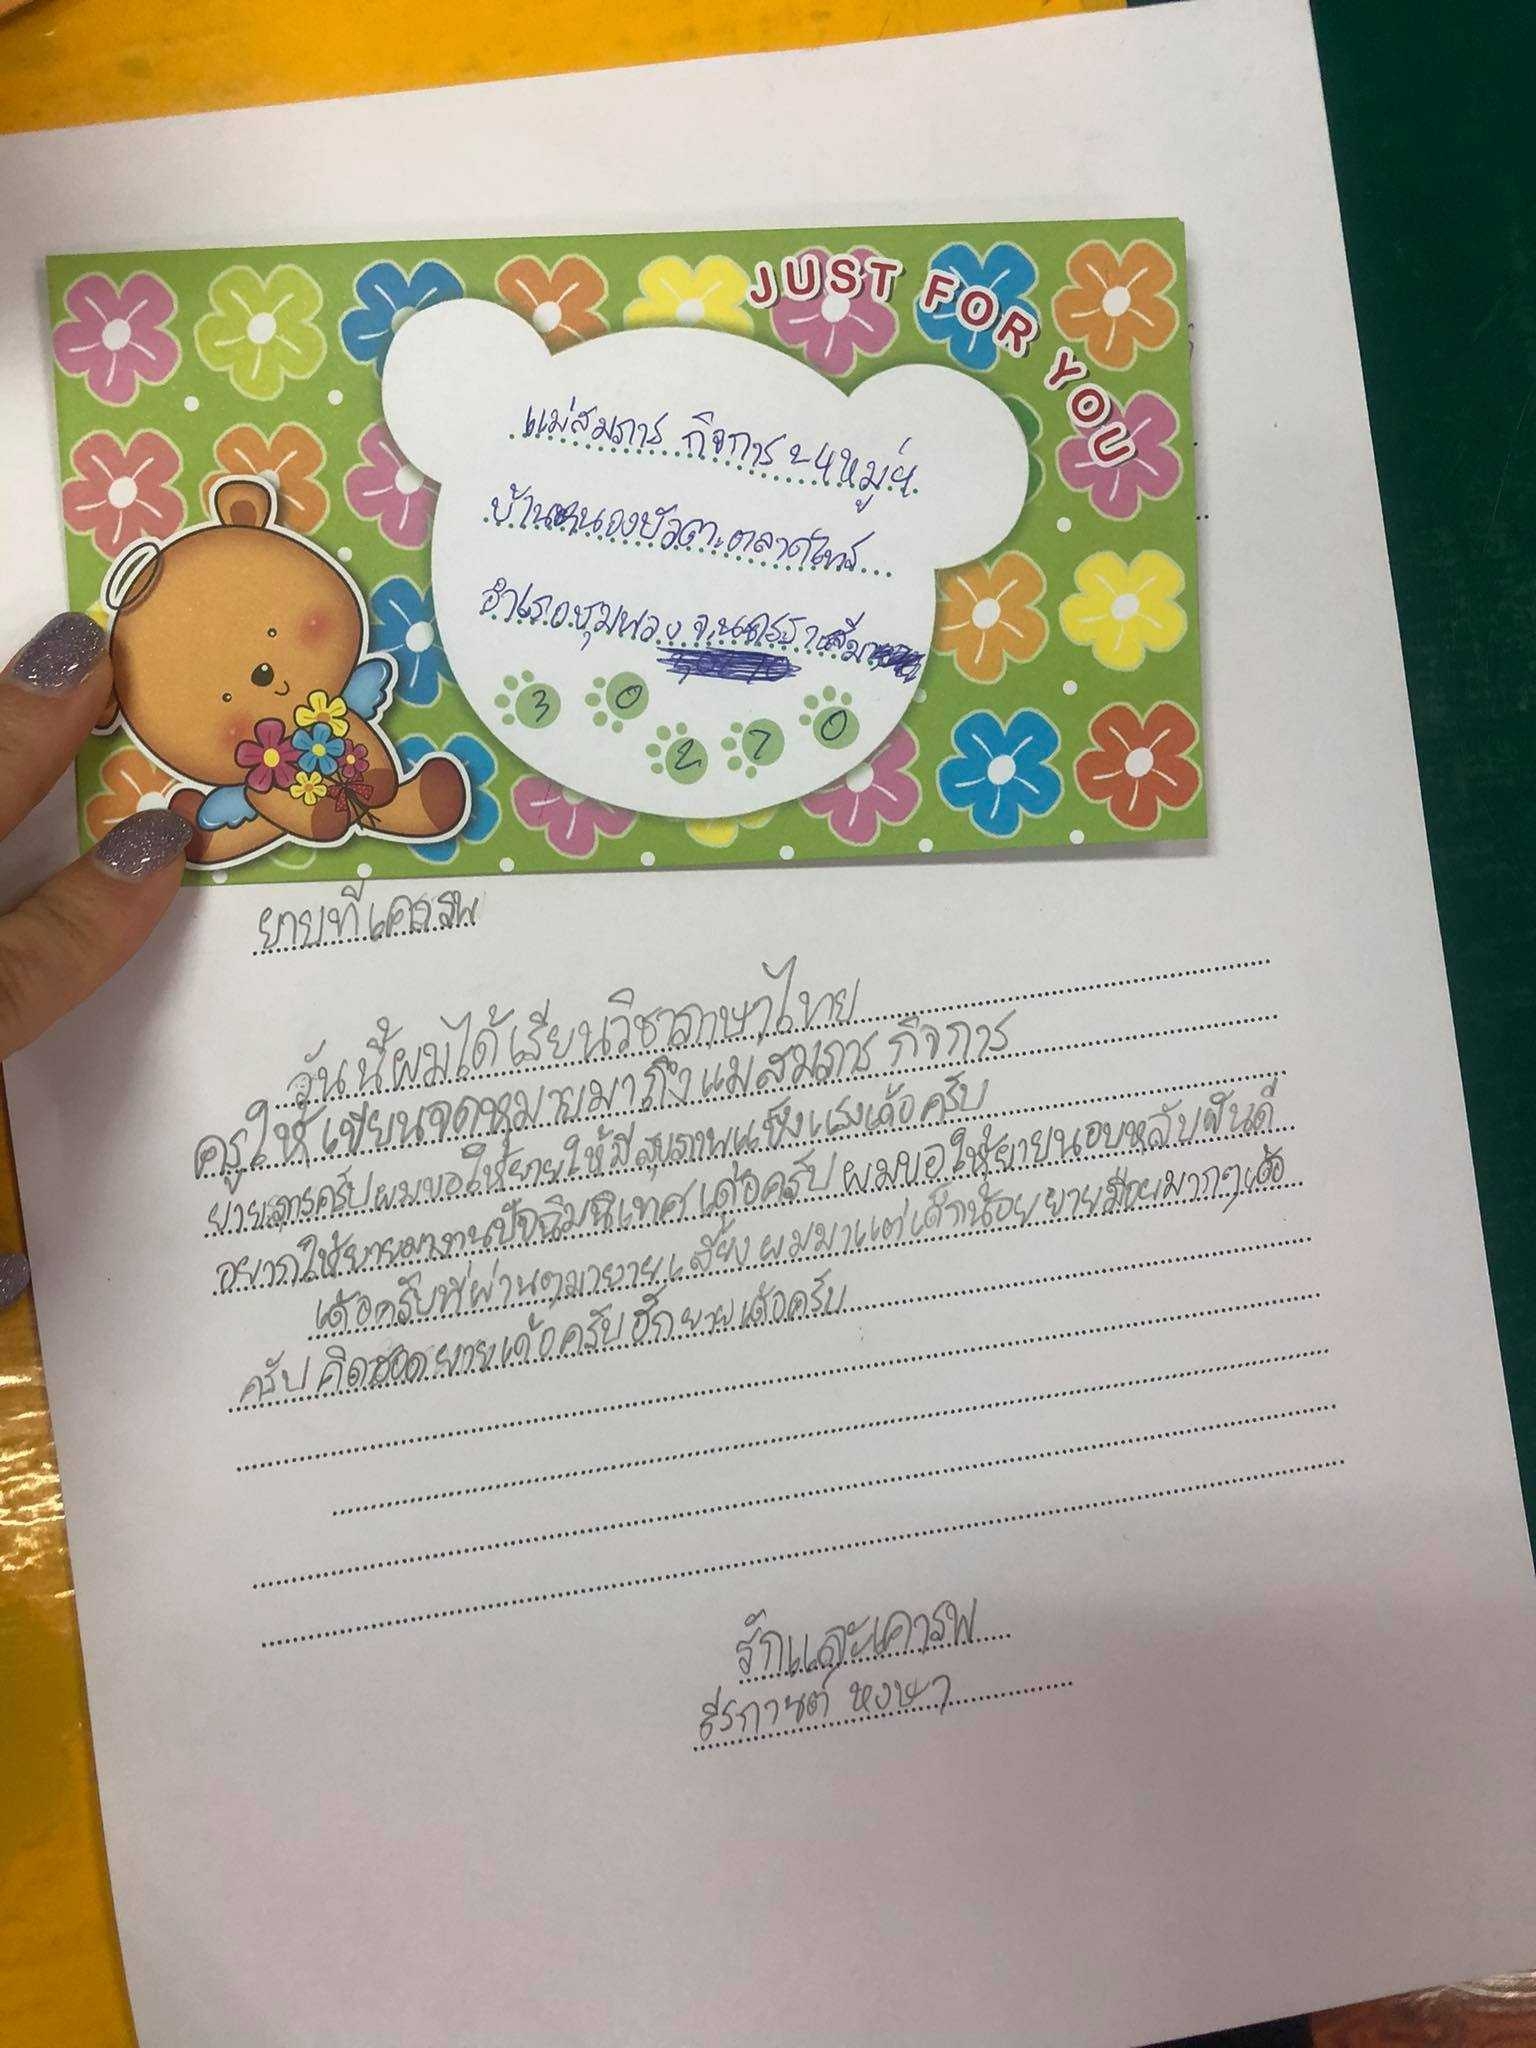 JUST FOR YOU
แม่สมภาร กิจการ 24 หมู่ 4
บ้านหนองบัวตะตลาดไทร
อำเภอชุมพวง จ.นครราชสีมา
3 0 2 7 0
ยายที่เคารพ
วันนี้ผมได้เรียนวิชาภาษาไทย
ครูให้เขียนจดหมายมาถึงแม่สมภาร กิจการ
ยายภารครับผมขอให้ยายให้มีสุขภาพแข็งแรงเด้อครับ
อยากให้ยายมางานปัจฉิมนิเทศเด้อครับ ผมขอให้ยายนอนหลับฝันดี
เด้อครับที่ผ่านมายายเลี้ยงผมมาแต่เด็กน้อยยายเมื่อยมากๆเด้อ
ครับ คิดฮอดยายเด้อครับฮักยายเด้อครับ
รักและเคารพ
ธีรกานต์ หงษา